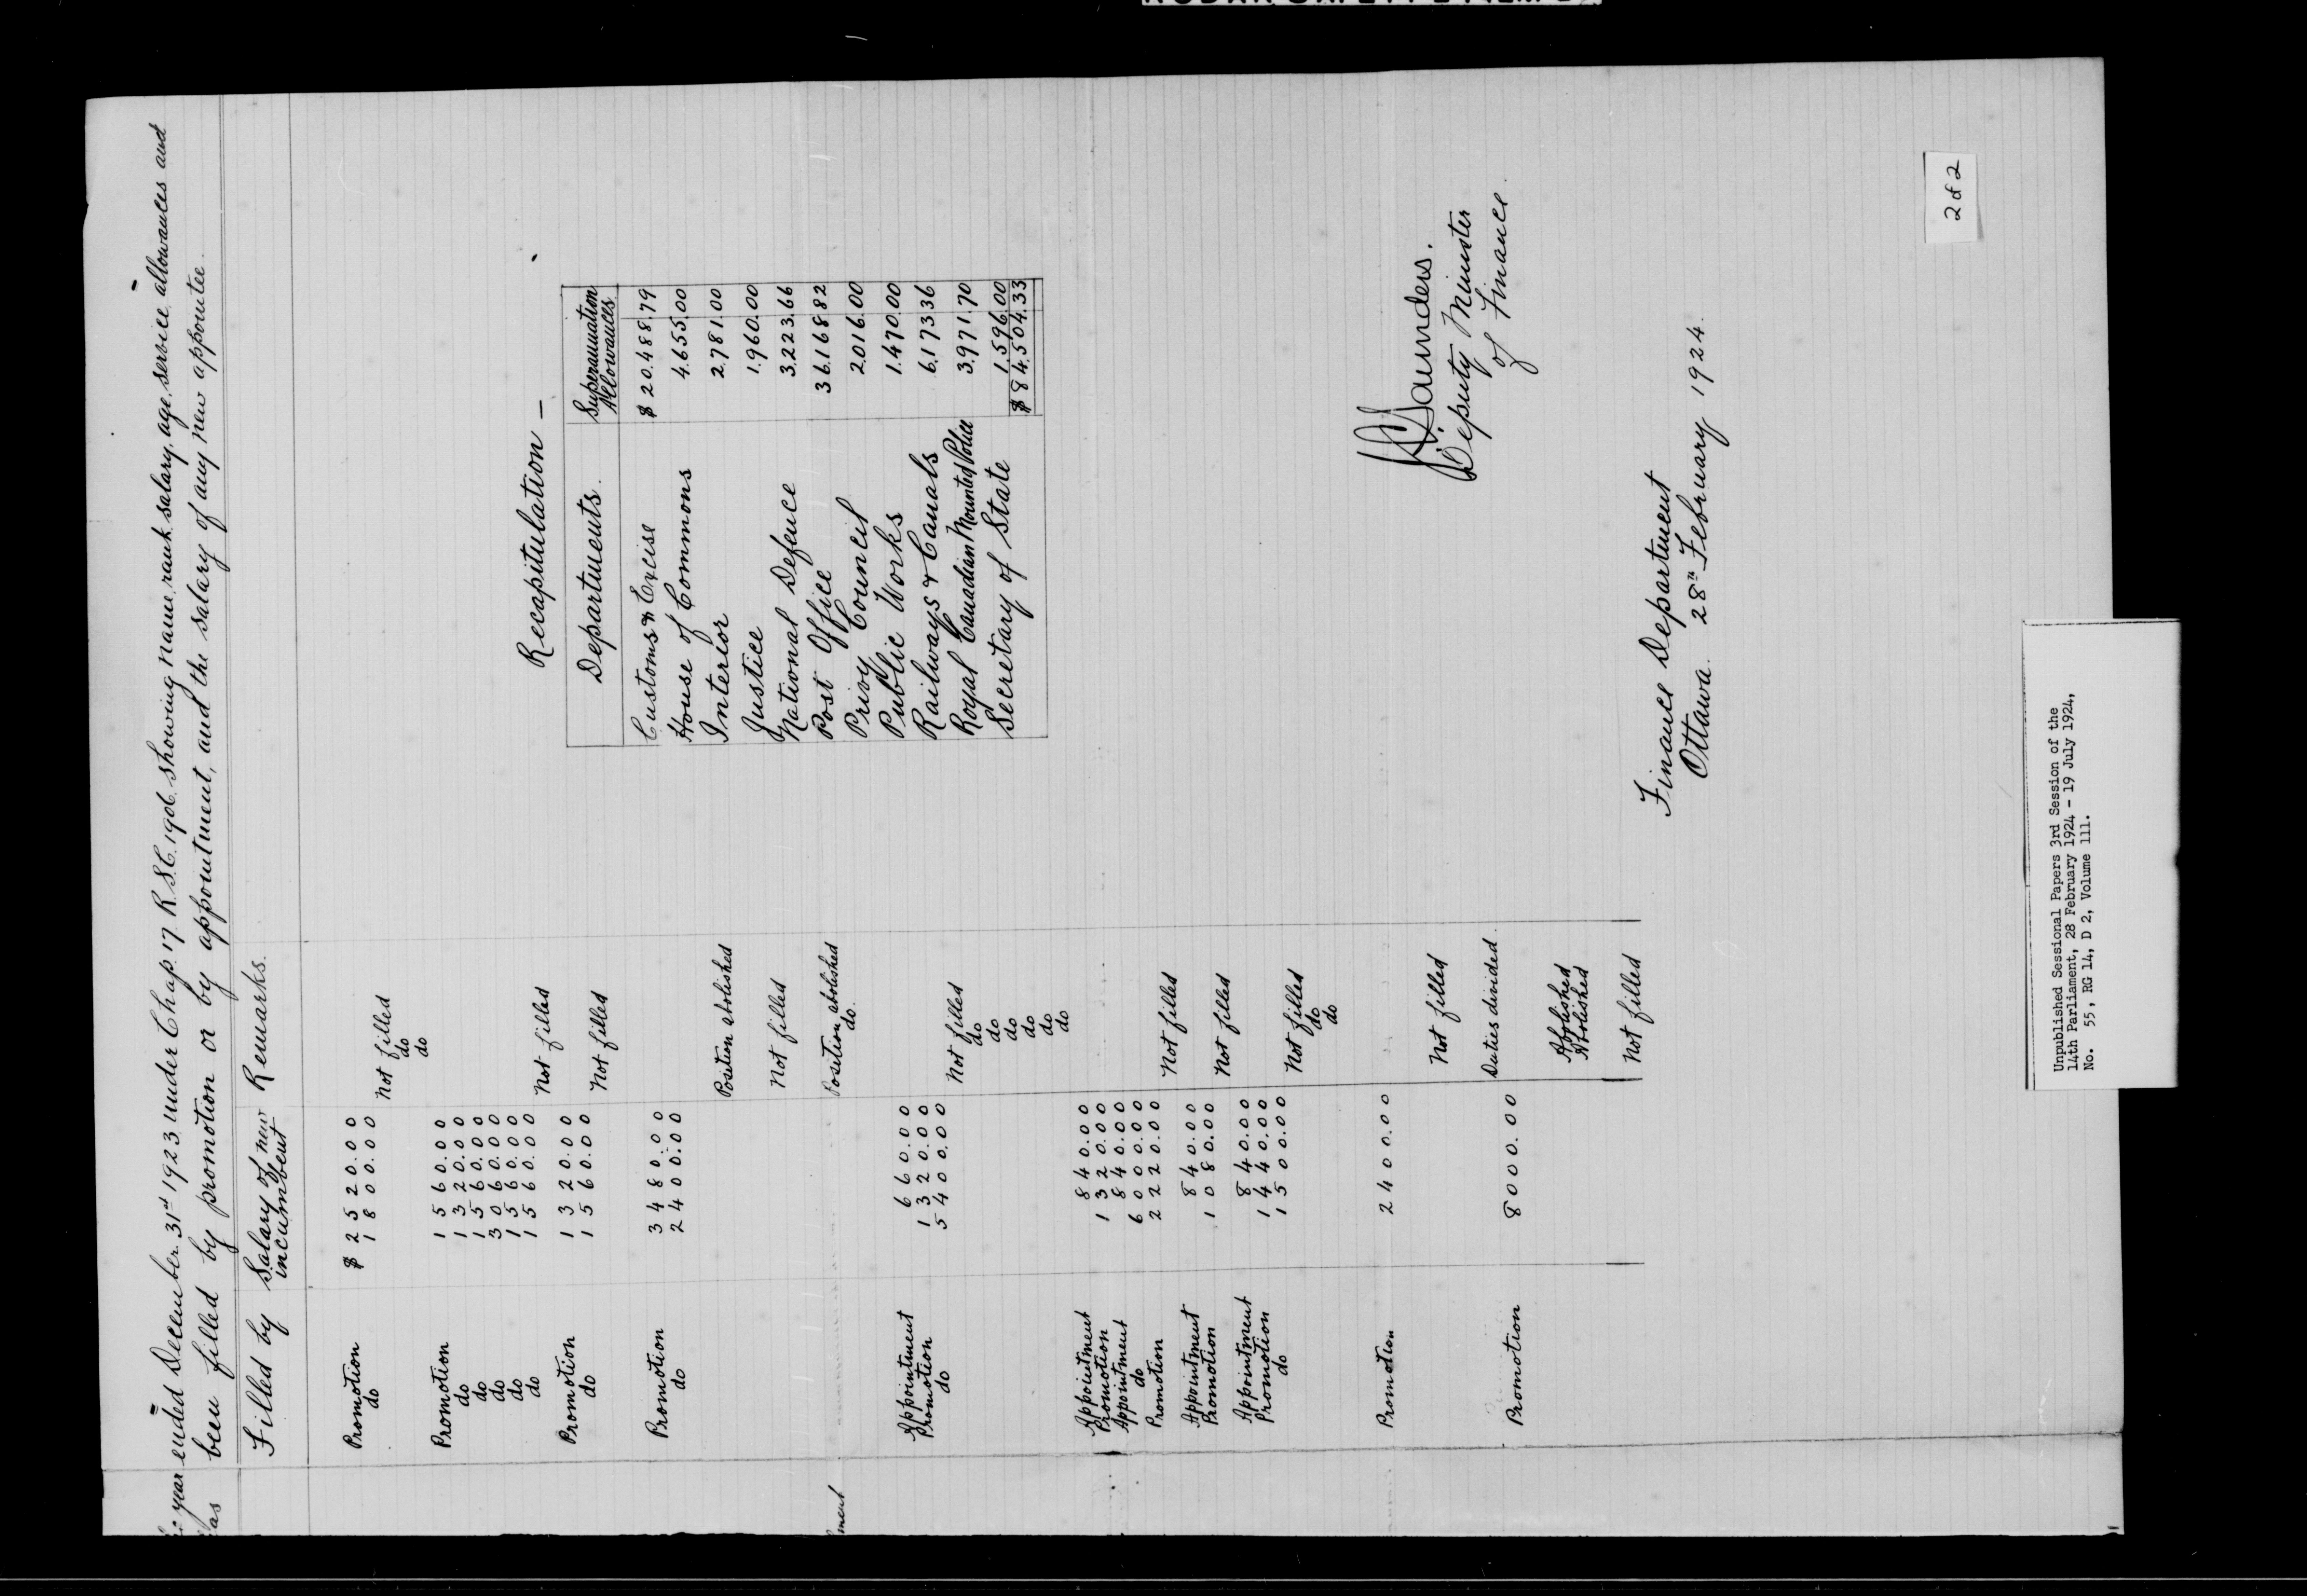 year ended December 31st 1923 under Chap. 17 R.S.C. 1906 showing name, rank, salary, age, service, allowances and
been filled by promotion or by appointment, and the salary of any new appointee.
Filled by Salary of new incumbent Remarks.
Promotion $ 2520.00
do 1800.00
Not filled
do
do
Promotion 1560.00
do 1320.00
do 1560.00
do 3060.00
do 1560.00
do 1560.00
Not filled
Promotion 1320.00
do 1560.00
Not filled
Promotion 3480.00
do 2400.00
Position abolished
Not filled
Position abolished
do
ment
Appointment 660.00
Promotion 1320.00
do 5400.00
Not filled
do
do
do
do
do
do
Appointment 840.00
Promotion 1320.00
Appointment 840.00
do 6000.00
Promotion 2220.00
Not filled
Appointment 840.00
Promotion 1080.00
Not filled
Appointment 840.00
Promotion 1440.00
do 1500.00
Not filled
do
do
Promotion 2400.00
Not filled
Duties divided
Promotion 8000.00
Abolished
Abolished
Not filled
Recapitulation –
Departments. Superannuation Allowances
Customs & Excise $ 20.488.79
House of Commons 4.655.00
Interior 2.781.00
Justice 1.960.00
National Defence 3.223.66
Post Office 36.168 82
Privy Council 2.016.00
Public Works 1.470.00
Railways & Canals 6.173 36
Royal Canadian Mounted Police 3.971.70
Secretary of State 1.596.00
$ 84.504.33
Saunders.
Deputy Minister
of Finance.
Finance Department
Ottawa. 28th February 1924.
2 of 2
Unpublished Sessional Papers 3rd Session of the
14th Parliament, 28 February 1924 - 19 July 1924,
No. 55, RG 14, D 2, Volume 111.